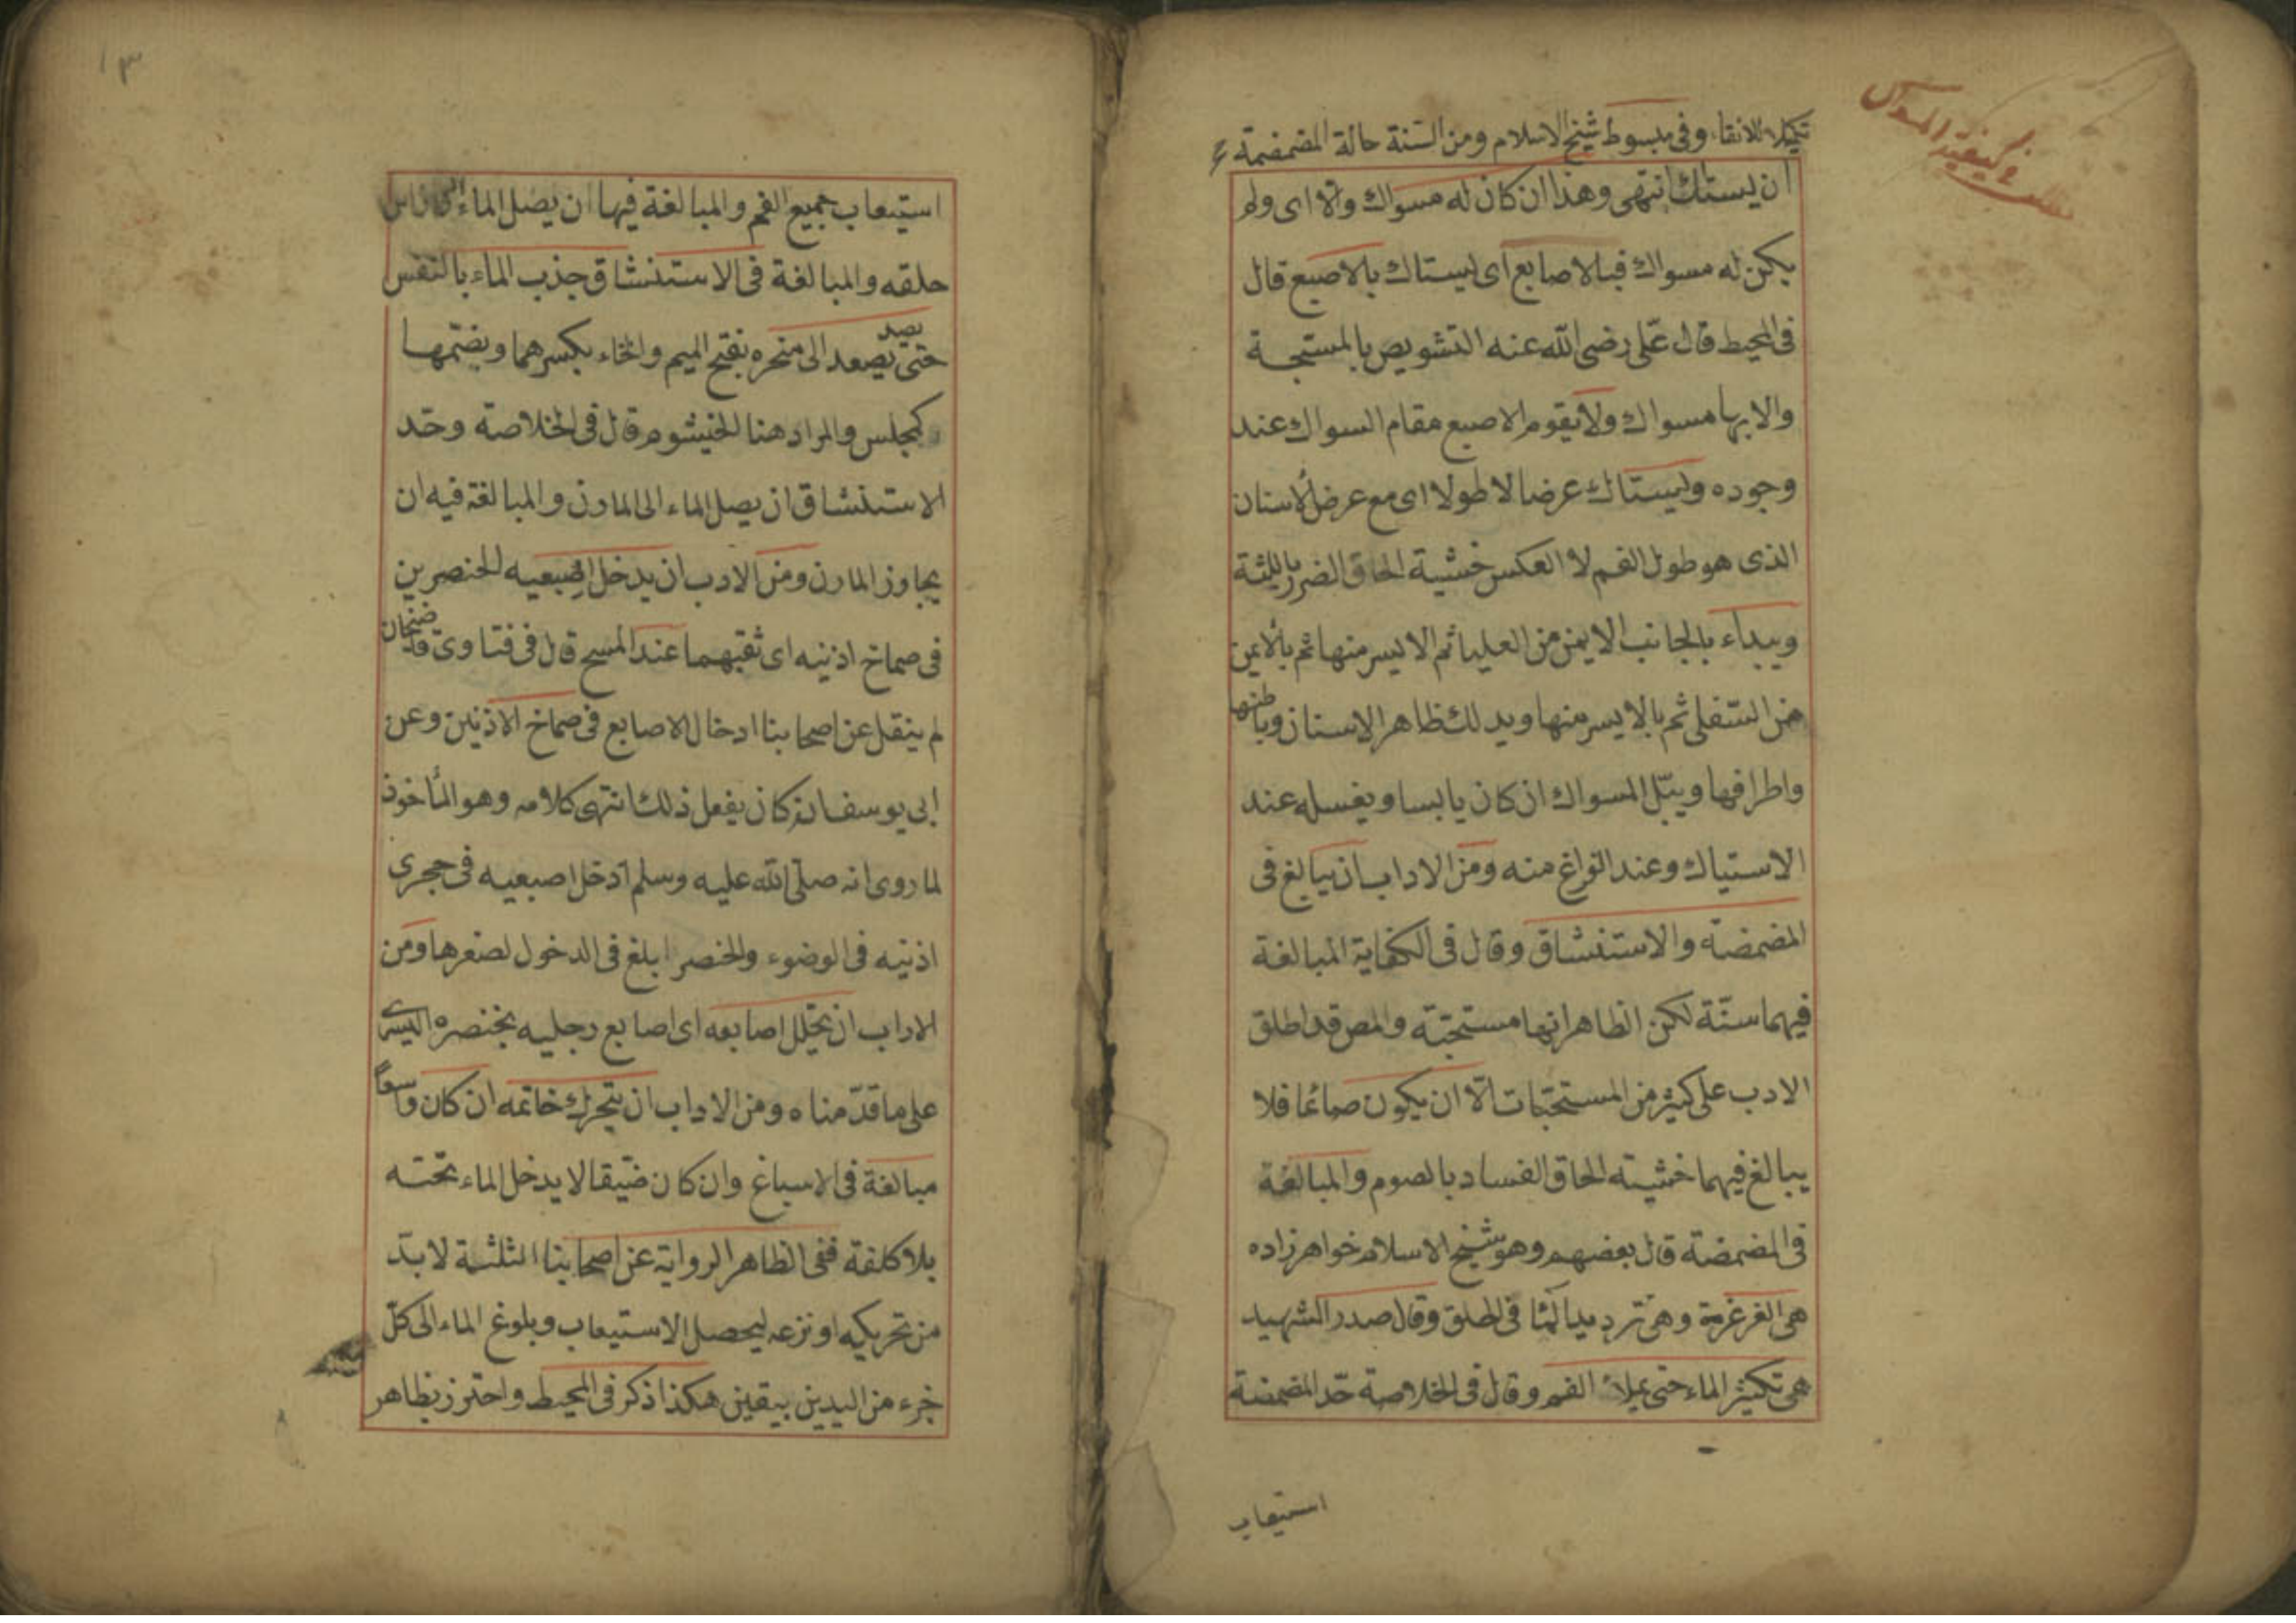 تكميلا للانقاء وفى مبسوط شيخ الاسلام ومن السنة حالة المضمضمة
ان يستاك انتهى وهذا ان كان له مسواك والا اى ولم
يكن له مسواك فبالاصابع اى ليستاك بالاصبع قال
فى المحيط قال على رضى الله عنه التشويص بالمسبحة
والابهام سواك ولا يقوم الاصبع مقام السواك عند
وجوده وليستاك عرضا لا طولا اى مع عرض الاسنان
الذى هو طول الفم لا العكس خشية الحاق الضرر بالليثة
ويبداء بالجانب الايمن من العليا ثم الايسر منها ثم بالايمن
من السفلى ثم بالايسر منها ويدلك ظاهر الاسنان وباطنها
واطرافها ويبل المسواك ان كان يابسا ويغسله عند
الاستياك وعند الفراغ منه ومن الاداب ان يبالغ فى
المضمضة والاستنشاق وقال فى الكفاية المبالغة
فيهما سنة لكن الظاهر انها مستحبة والمص قد اطلق
الادب على كثير من المستحبات الا ان يكون صائما فلا
يبالغ فيهما خشية الحاق الفساد بالصوم والمبالغة
فى المضمضة قال بعضهم وهو شيخ الاسلام خواهر زاده
هى الغرغرة وهى ترديد الماء فى الحلق وقال صدر الشهيد
هى تكثير الماء حتى يملاء الفم وقال فى الخلاصة حد المضمضة
استيعاب
١٣
استيعاب جميع الفم والمبالغة فيها ان يصل الماء الى راس
حلقه والمبالغة فى الاستنشاق جذب الماء بالنفس
حتى يصعد الى منخره بفتح الميم والخاء بكسرهما وبضمها
كمجلس والمراد هنا الخيشوم قال فى الخلاصة وحد
الاستنشاق ان يصل الماء الى المارن والمبالغة فيه ان
يجاوز المارن ومن الادب ان يدخل اصبعيه الخنصرين
فى صماخ اذنيه اى ثقبهما عند المسح قال فى فتاوى قاضيخان
لم ينقل عن اصحابنا ادخال الاصابع فى صماخ الاذنين وعن
ابى يوسف انه كان يفعل ذلك انتهى كلامه وهو المأخوذ
لما روى انه صلى الله عليه وسلم ادخل اصبعيه فى حجرى
اذنيه فى الوضوء والخنصر ابلغ فى الدخول لصغرها ومن
الاداب ان يخلل اصابعه اى اصابع رجليه بخنصره اليسرى
على ما قدمناه ومن الاداب ان يتحرك خاتمه ان كان واسعا
مبالغة فى الاسباغ وان كان ضيقا لا يدخل الماء تحته
بلا كلفة ففى الظاهر الرواية عن اصحابنا الثلثة لا بد
من تحريكه او نزعه ليحصل الاستيعاب وبلوغ الماء الى كل
جزء من اليدين بيقين هكذا ذكر فى المحيط واحترز بظاهر